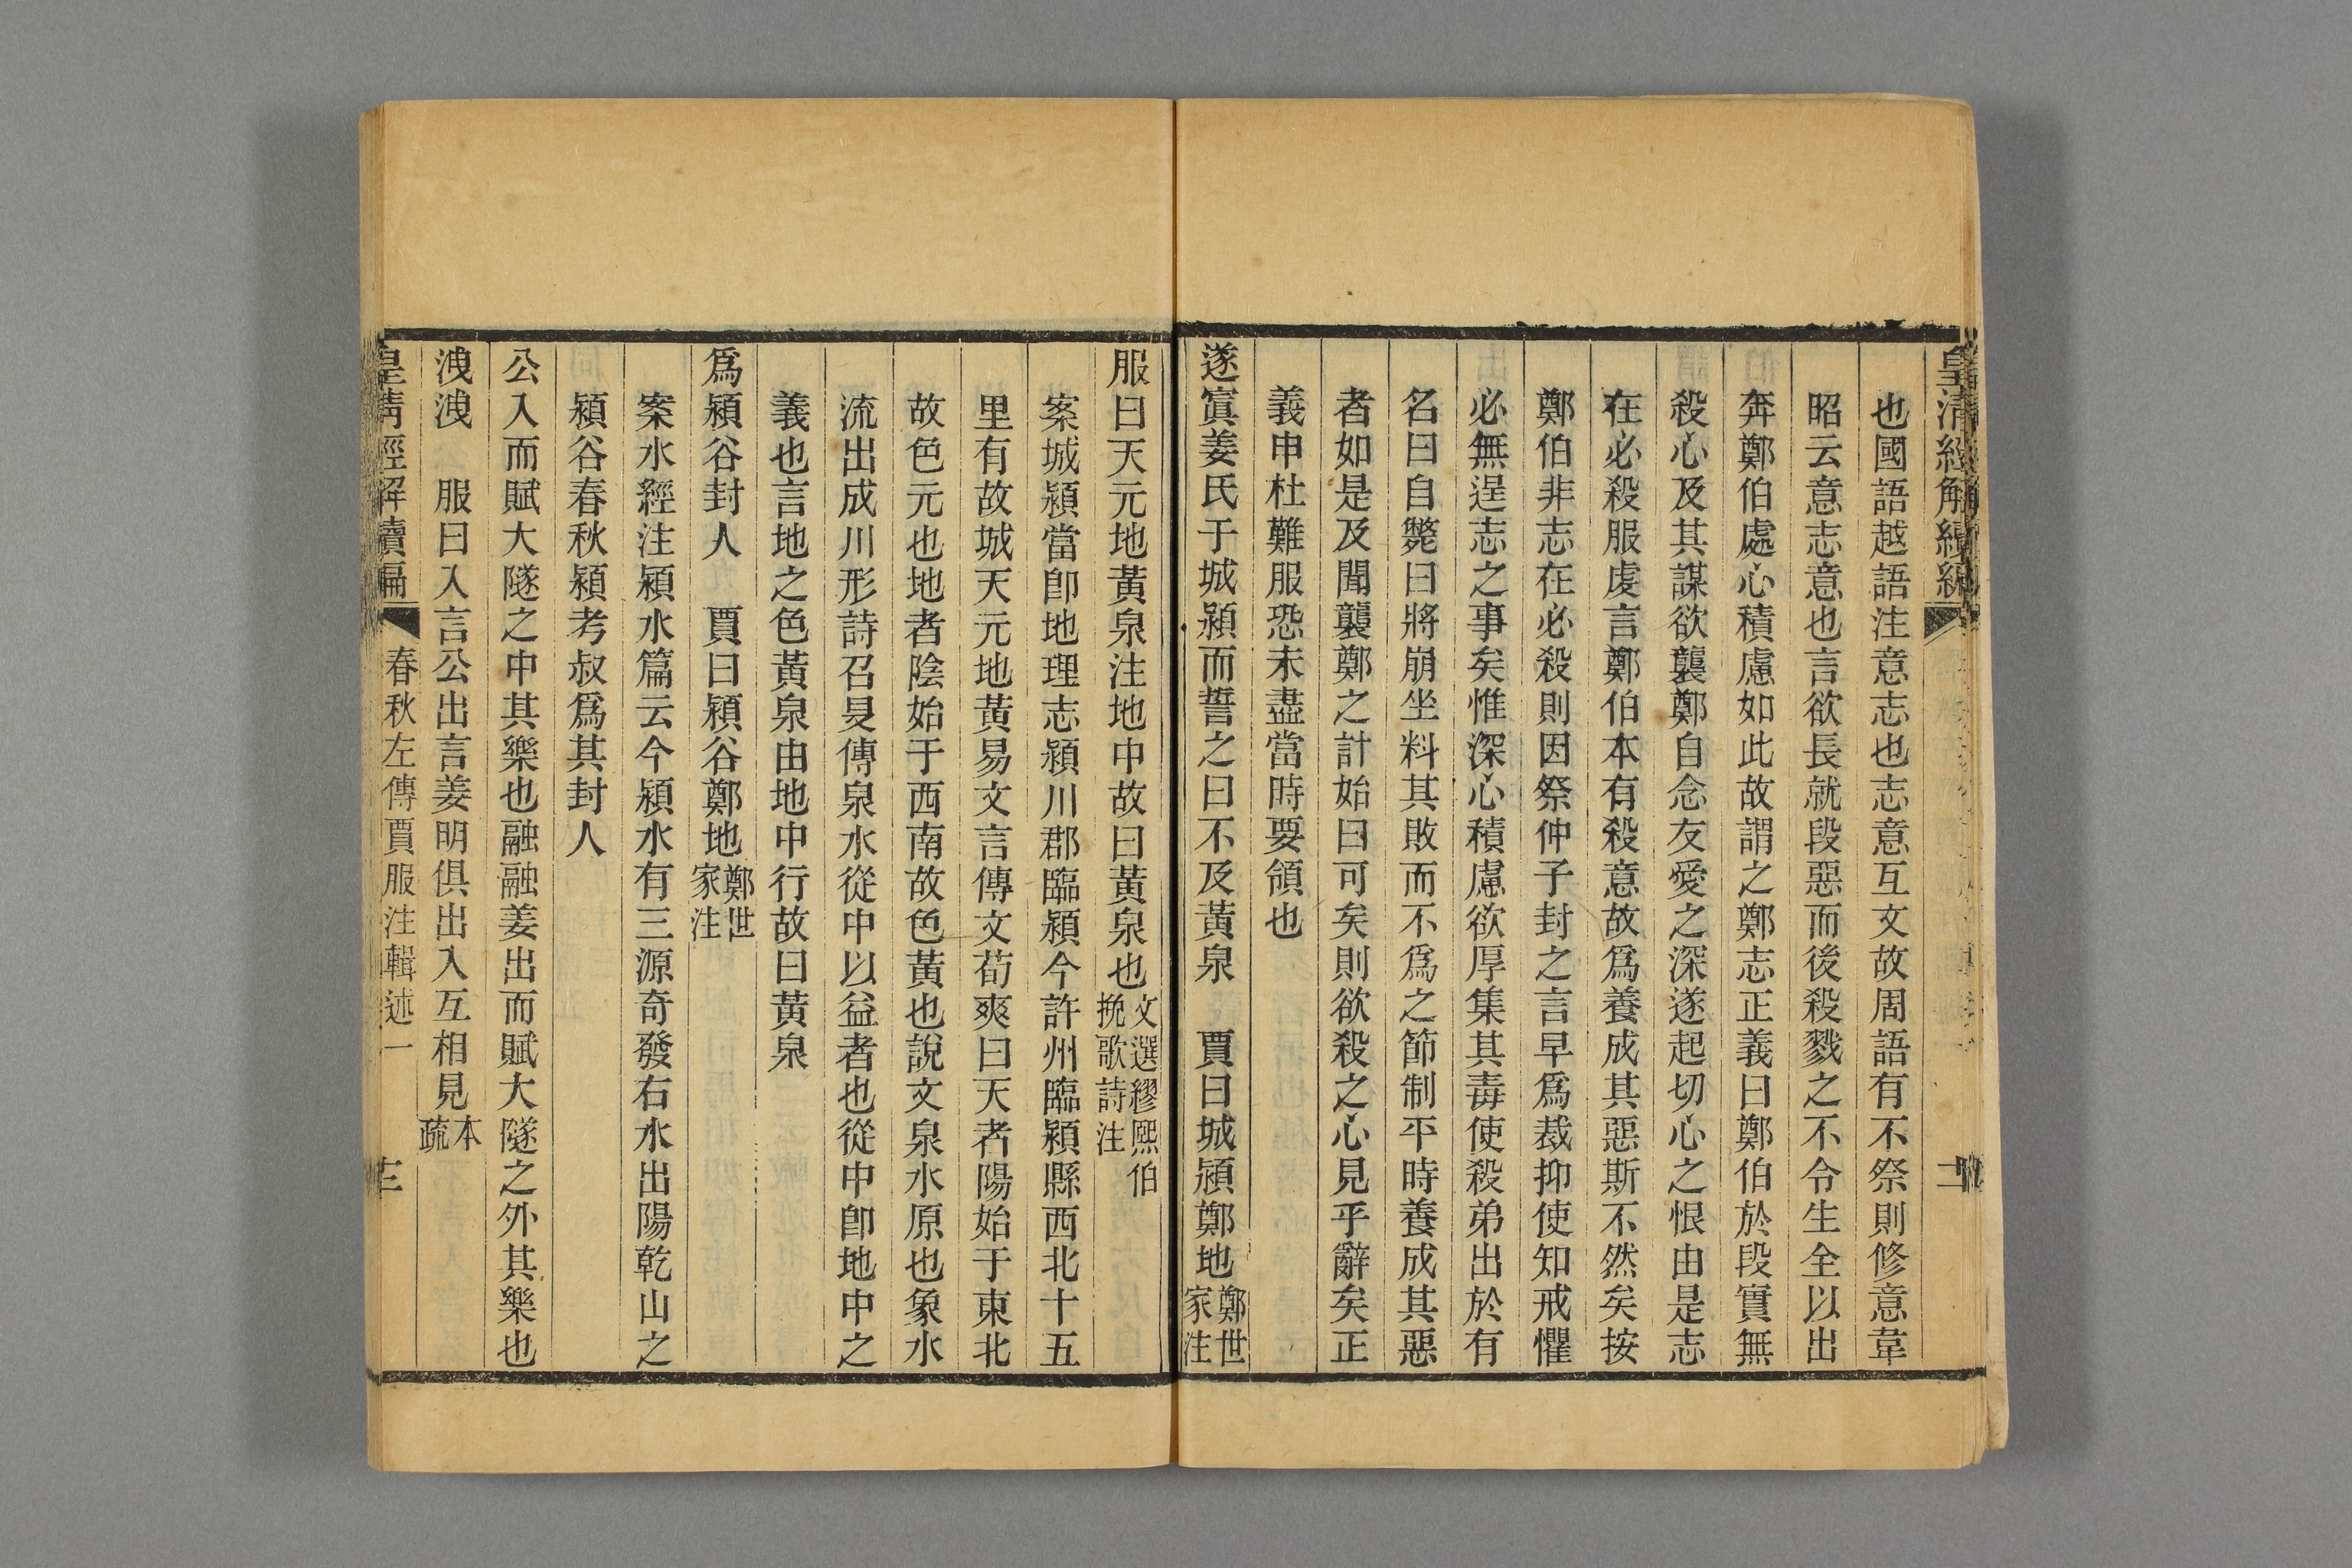 皇清經解續編
二
也國語越語注意志也志意互文故周語有不祭則修意韋
昭云意志意也言欲長就段惡而後殺戮之不令生全以出
奔鄭伯處心積慮如此故謂之鄭志正義曰鄭伯於段實無
殺心及其謀欲襲鄭自念友愛之深遂起切心之恨由是志
在必殺服虔言鄭伯本有殺意故爲養成其惡斯不然矣按
鄭伯非志在必殺則因祭仲子封之言早爲裁抑使知戒懼
必無逞志之事矣惟深心積慮欲厚集其毒使殺弟出於有
名曰自斃曰將崩坐料其敗而不爲之節制平時養成其惡
者如是及聞襲鄭之計始曰可矣則欲殺之心見乎辭矣正
義申杜難服恐未盡當時要領也
遂寘姜氏于城潁而誓之曰不及黃泉 賈曰城潁鄭地鄭世家注
服曰天元地黃泉注地中故曰黃泉也文選繆熙伯挽歌詩注
案城潁當卽地理志潁川郡臨潁今許州臨潁縣西北十五
里有故城天元地黃易文言傳文荀爽曰天者陽始于東北
故色元也地者陰始于西南故色黃也說文泉水原也象水
流出成川形詩召旻傳泉水從中以益者也從中卽地中之
義也言地之色黃泉由地中行故曰黃泉
爲潁谷封人 賈曰潁谷鄭地鄭世家注
案水經注潁水篇云今潁水有三源奇發右水出陽乾山之
潁谷春秋潁考叔爲其封人
公入而賦大隧之中其樂也融融姜出而賦大隧之外其樂也
洩洩 服曰入言公出言姜明俱出入互相見本疏
皇清經解續編
春秋左傳賈服注輯述一
三